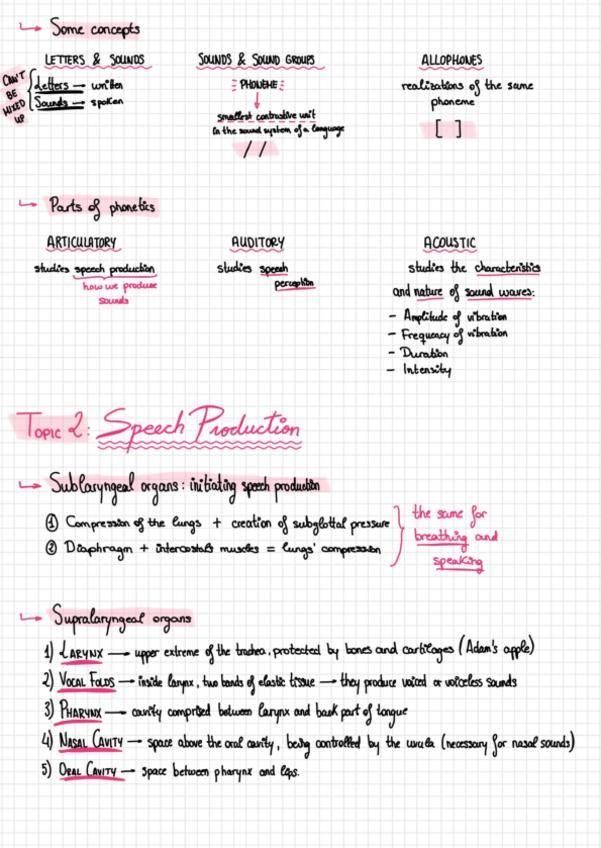 Some concepts
LETTERS & SOUNDS
CAN'T
BE
MIXED
UP
Letters → written
Sounds → spoken
SOUNDS & SOUND GROUPS
PHONEME
smallest contrastive unit
in the sound system of a language
/ /
ALLOPHONES
realizations of the same
phoneme
[ ]
Parts of phonetics
ARTICULATORY
studies speech production
how we produce
sounds
AUDITORY
studies speech
perception
ACOUSTIC
studies the characteristics
and nature of sound waves:
- Amplitude of vibration
- Frequency of vibration
- Duration
- Intensity
TOPIC 2: Speech Production
Sublaryngeal organs: initiating speech production
① Compression of the lungs + creation of subglottal pressure
② Diaphragm + intercostals muscles = lungs' compression
the same for
breathing and
speaking
Supralaryngeal organs
1) LARYNX → upper extreme of the trachea, protected by bones and cartilages (Adam's apple)
2) VOCAL FOLDS → inside larynx, two bands of elastic tissue → they produce voiced or voiceless sounds
3) PHARYNX → cavity comprised between larynx and back part of tongue
4) NASAL CAVITY → space above the oral cavity, being controlled by the uvula (necessary for nasal sounds)
5) ORAL CAVITY → space between pharynx and lips.